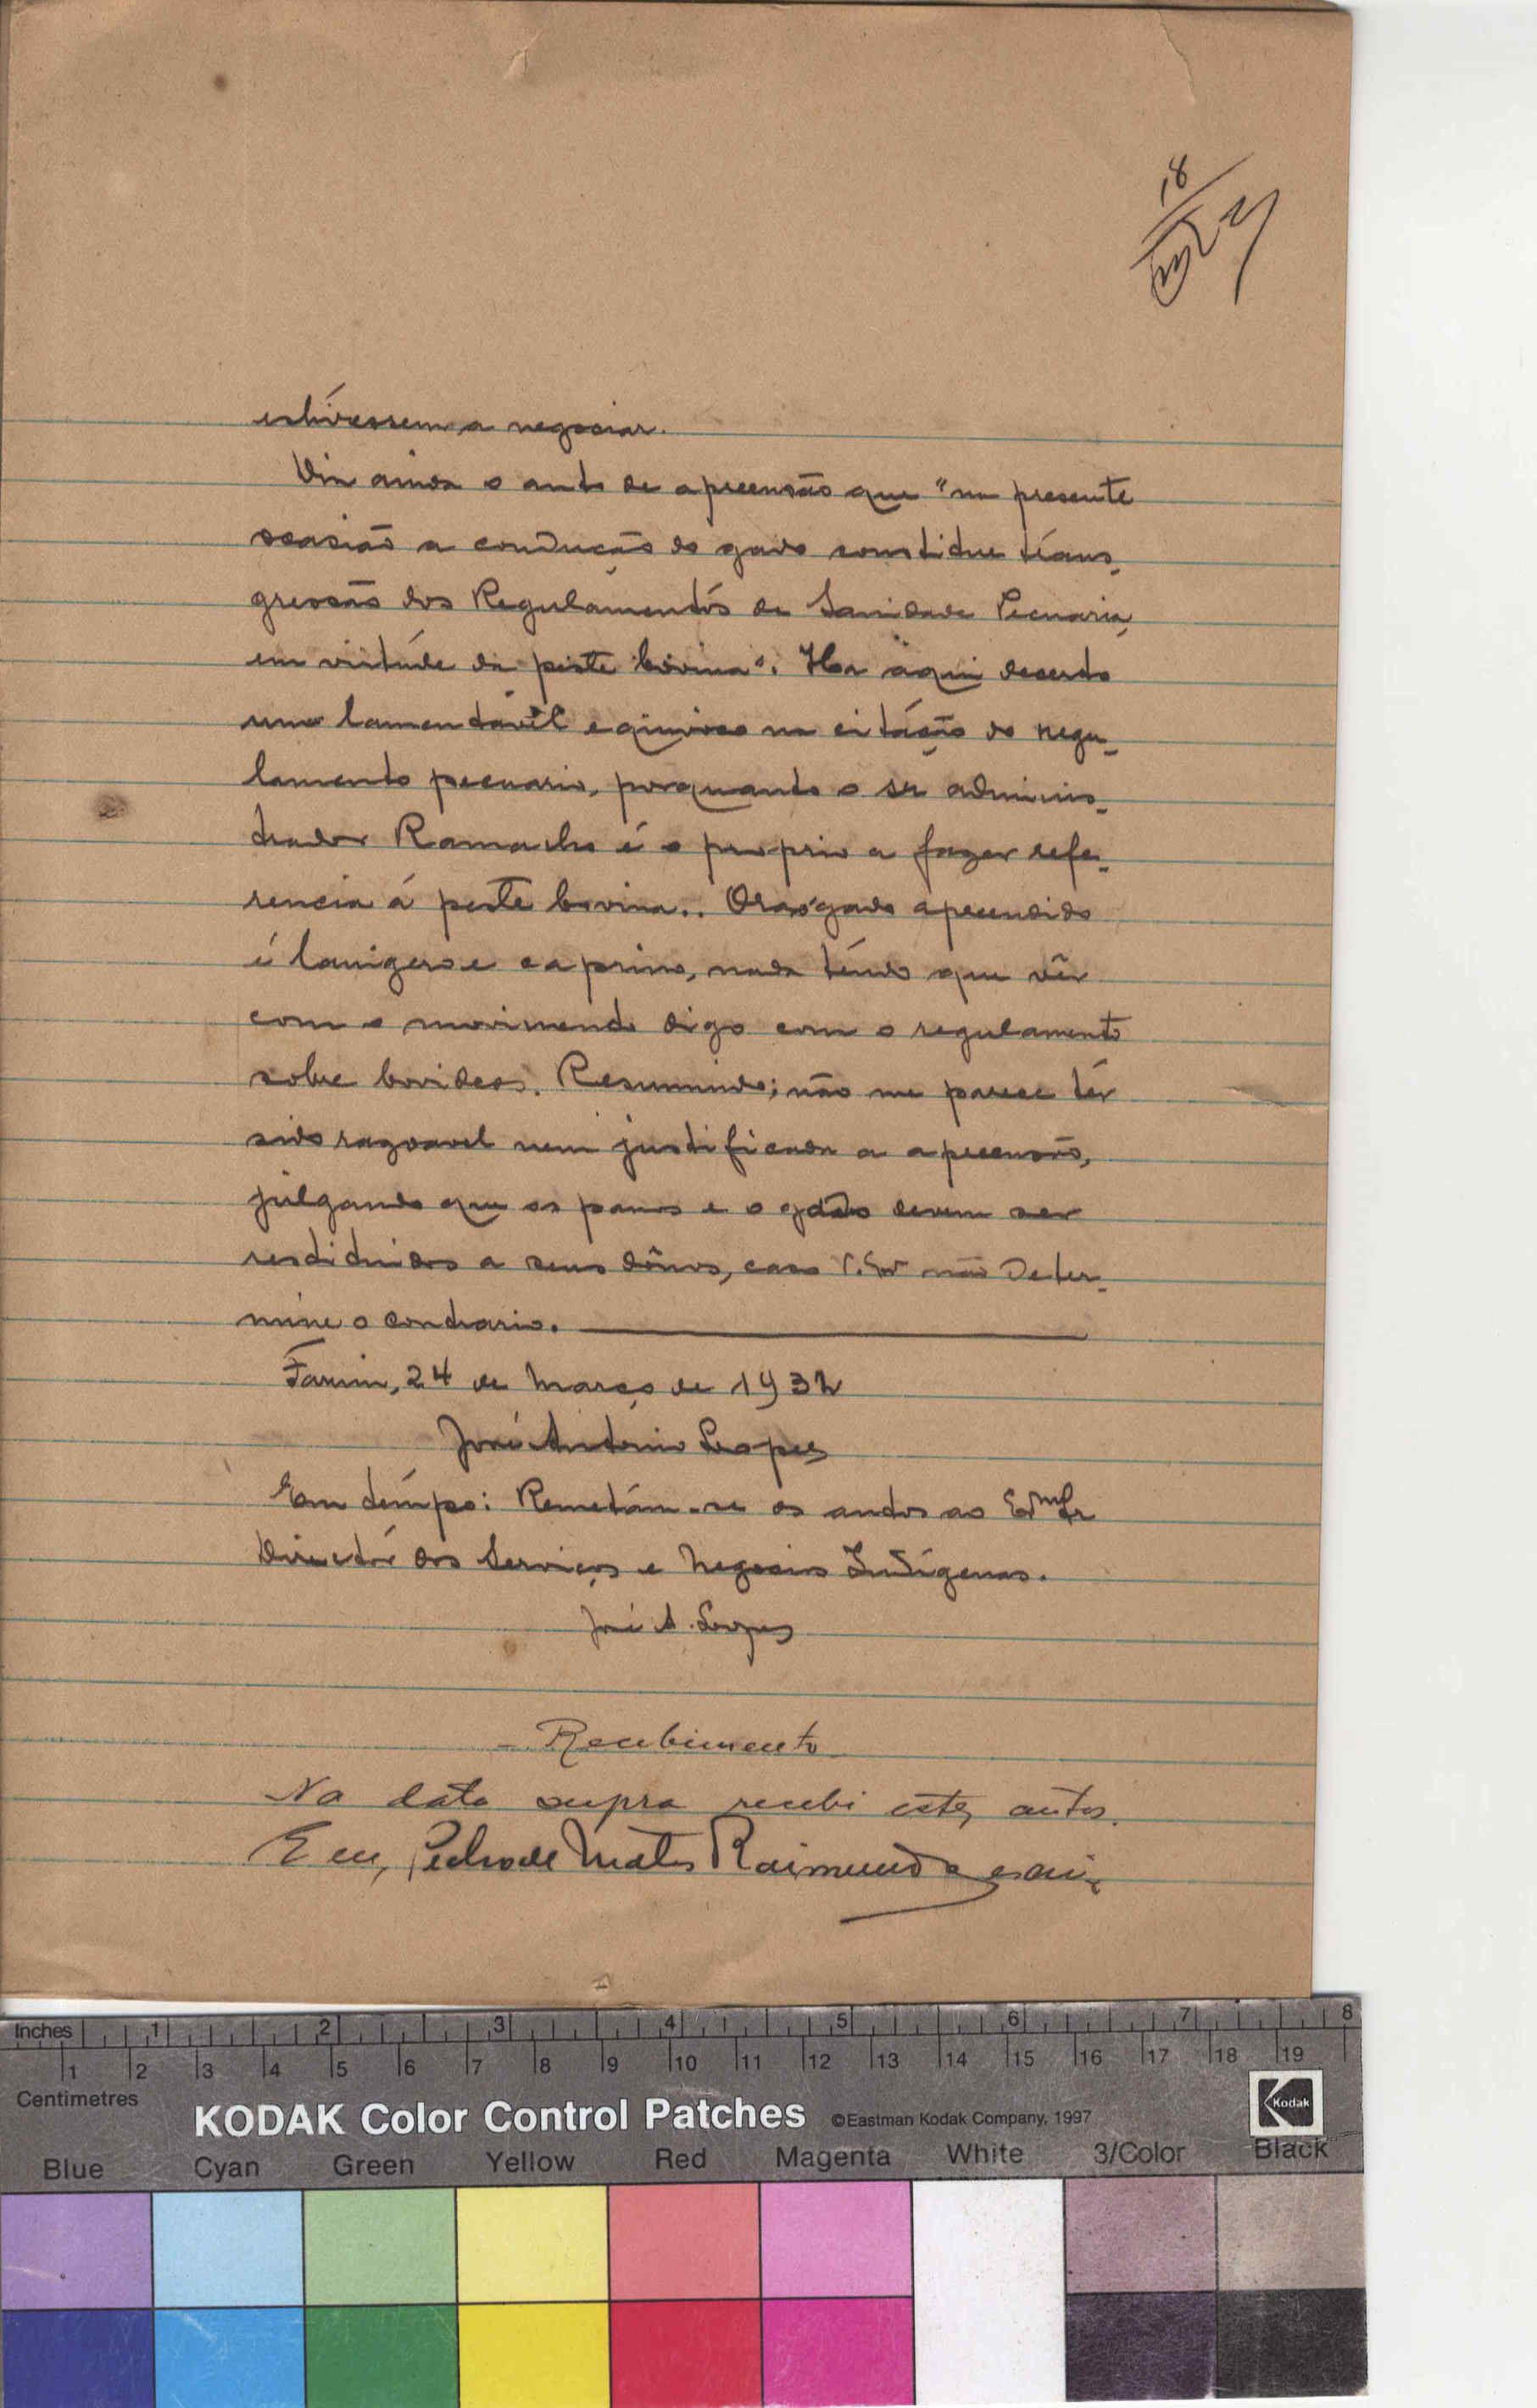 18
estivessem a negociar.
Diz ainda o auto de apreensão que "na presente
ocasião a condução do gado constitue trans-
gressão dos Regulamentos de Sanidade Pecuaria,
em virtude da peste bovina". Ha aqui decerto
um lamentável equivoco na citação do regu-
lamento pecuario, porquanto o sr adminis-
trador Ramalho é o proprio a fazer refe-
rencia á peste bovina.. Ora o gado apreendido
é lanigero e caprino, nada tendo que vêr
com o movimento digo com o regulamento
sobre bovideos. Resumindo; não me parece têr
sido razoavel nem justificada a apreensão,
julgando que os panos e o gado devem ser
restituidos a seus dônos, caso V. Exª não deter-
mine o contrario.
Farim, 24 de Março de 1932
José António Lopes
Em tempo: Remetam-se os autos ao Exmº Sr
Director dos Serviços e Negocios Indígenas.
José A. Lopes
- Recebimento -
Na data supra recebi estes autos.
E eu, Pedro de Matos Raimundo
Inches 1 2 3 4 5 6 7 8
1 2 3 4 5 6 7 8 9 10 11 12 13 14 15 16 17 18 19
Centimetres
KODAK Color Control Patches ©Eastman Kodak Company, 1997 Kodak
Blue Cyan Green Yellow Red Magenta White 3/Color Black